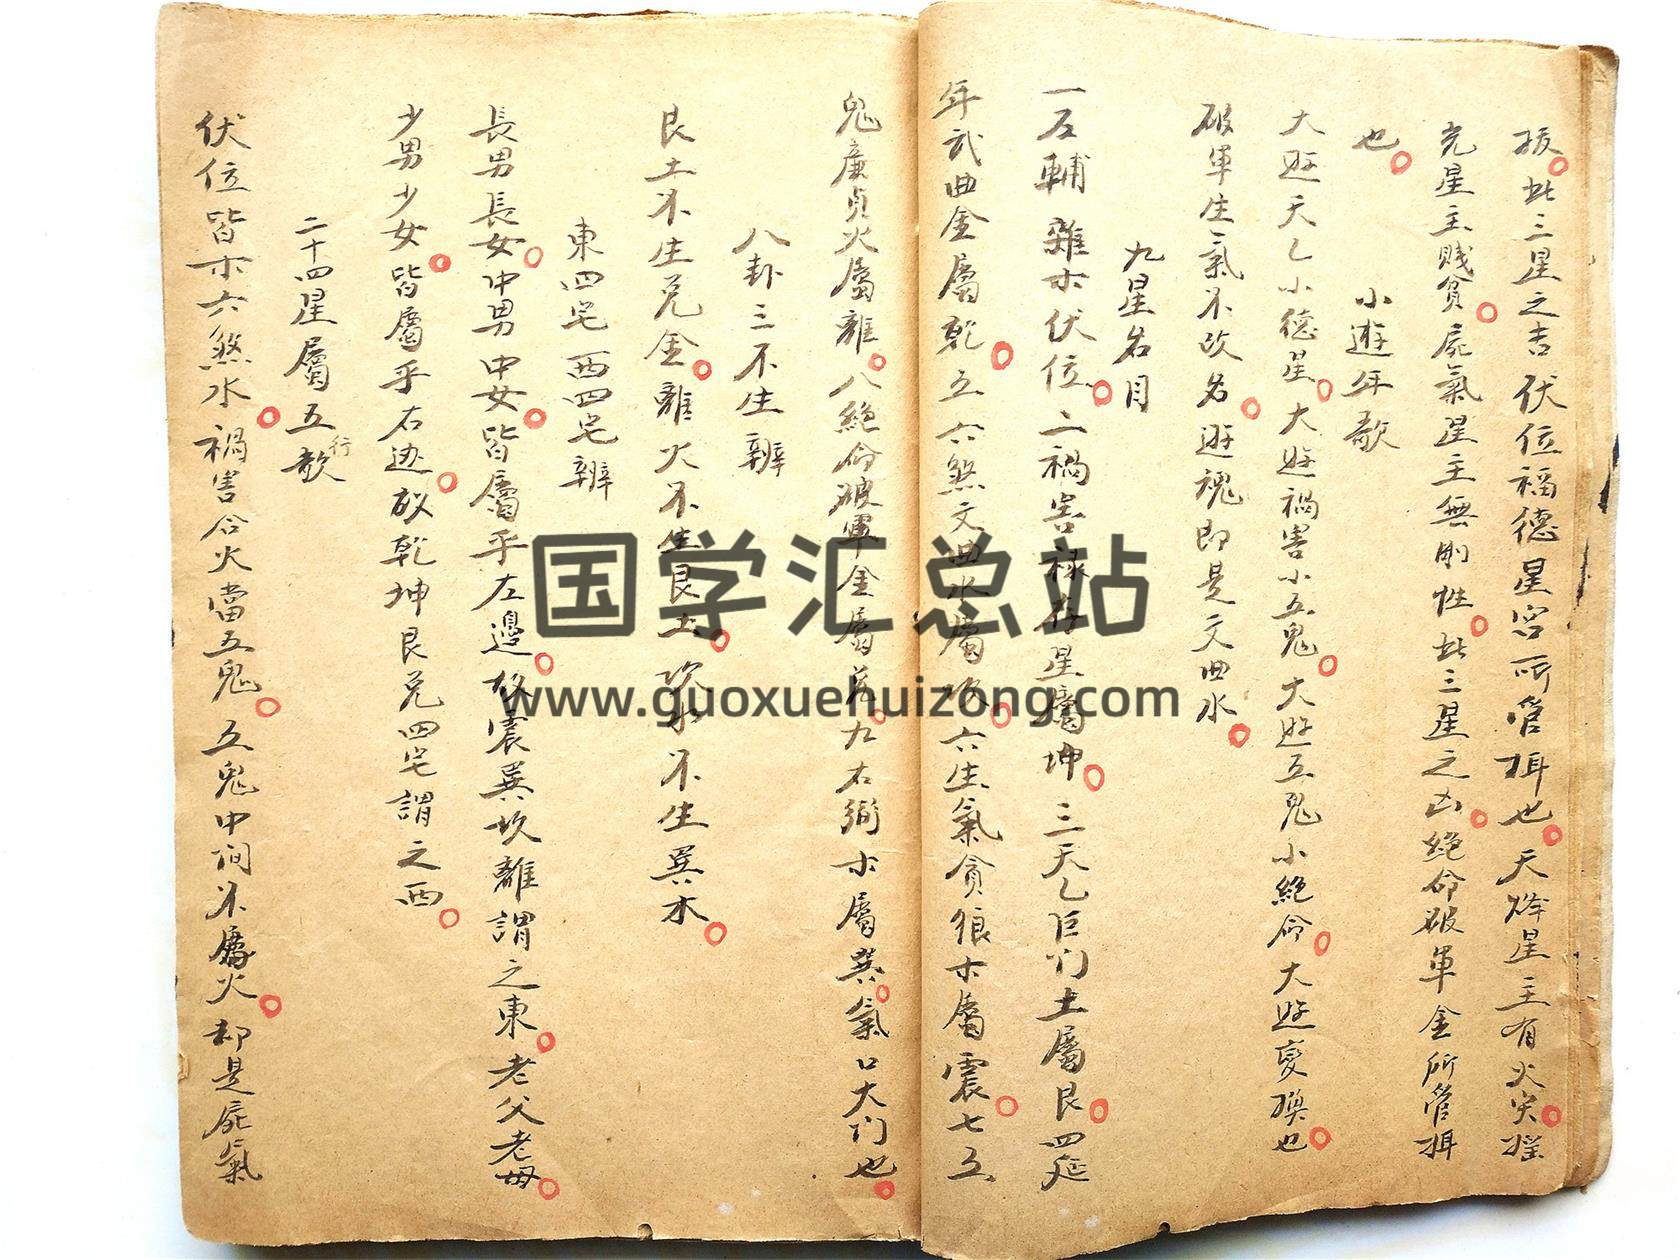 振此三星之吉伏位福德星宫所管揖也天降星主有火灾搖
光星主賤貧屍氣星主無剛性此三星之凶絕命破軍金所管揖
也
小遊年歌
大遊天乙小德星大遊禍害小五鬼大遊五鬼小絕命大遊变換也
破軍生氣不改名遊魂即是文曲水
九星名目
一左輔離木伏位二禍害禄存星屬坤三天乙巨门土屬艮四延
年武曲金屬乾五六煞文曲水屬坎六生氣貪狼木屬震七五
鬼廉貞火屬離八絕命破軍金屬 九右弼木屬巽氣口大门也
八卦三不生辨
艮土不生兌金離火不生艮土坎水不生巽木
東四宅西四宅辨
長男長女中男中女皆屬乎左邊故震巽坎離謂之東老父老母
少男少女皆屬乎右边故乾坤艮兌四宅謂之西
二十四星屬五行歌
伏位皆木六煞水禍害合火當五鬼五鬼中间不屬火却是屍氣
国学汇总站
www.guoxuehuizong.com